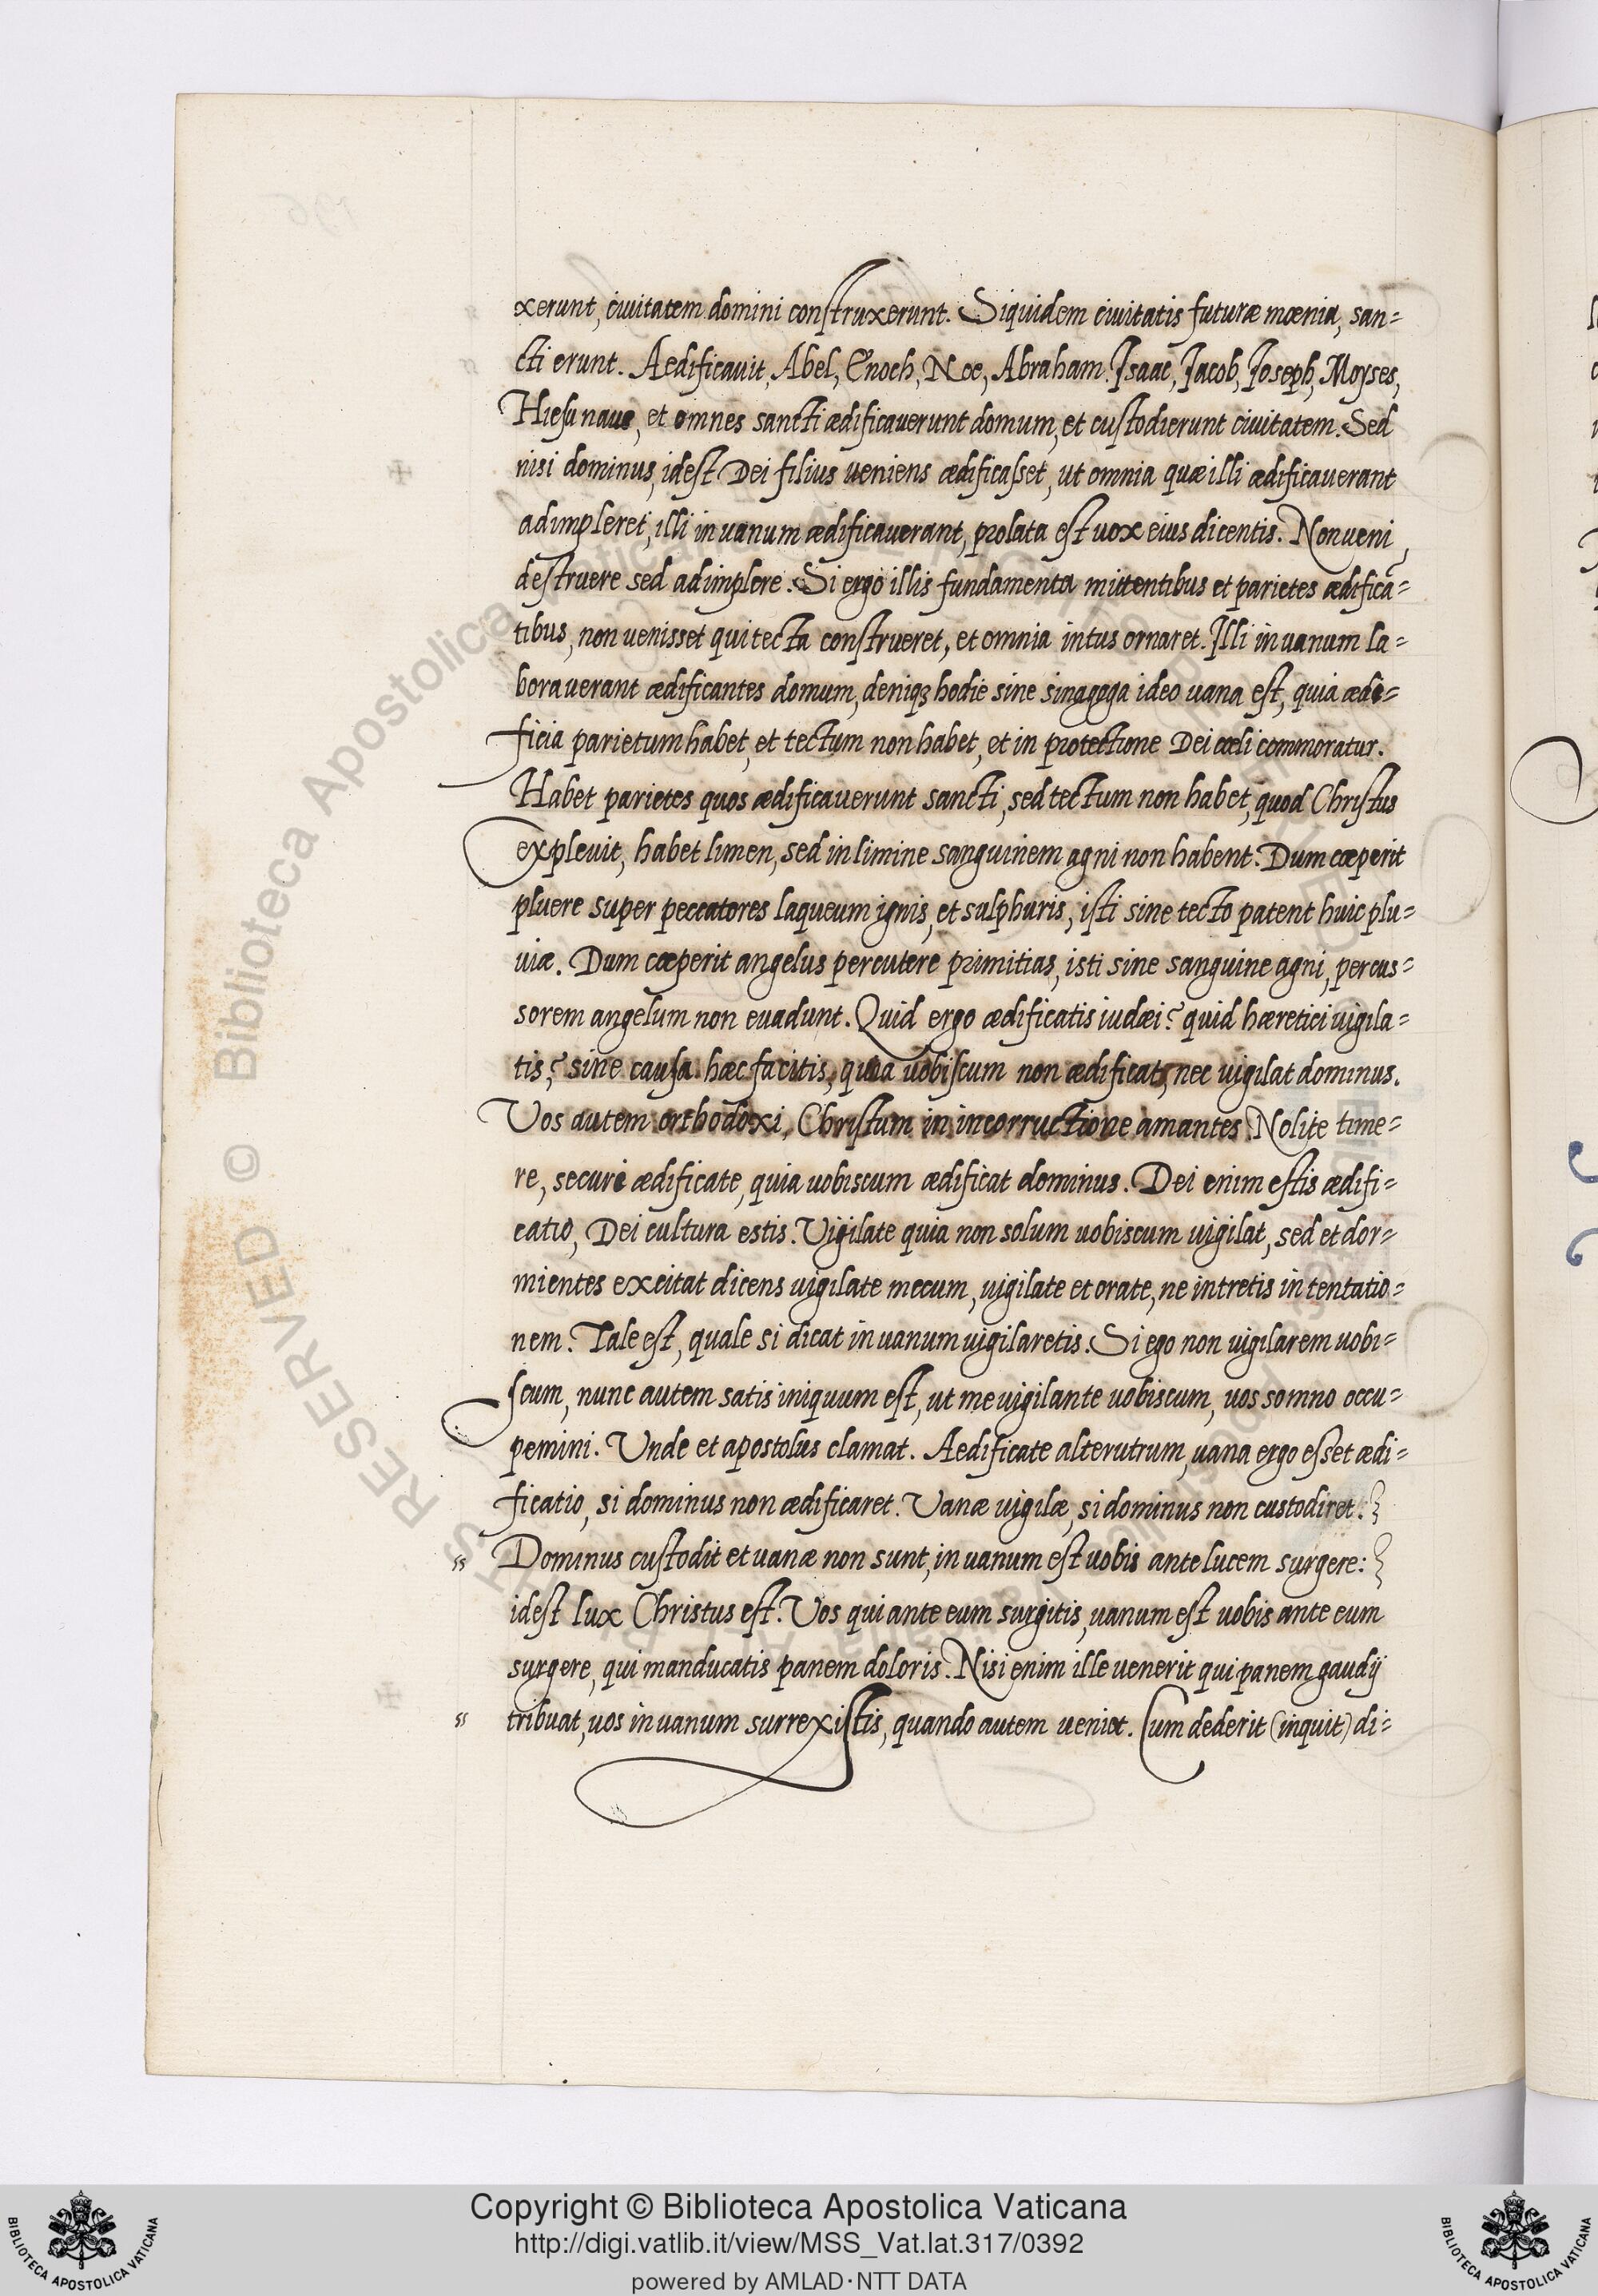 xerunt, civitatem domini construxerunt. Siquidem civitatis futuræ mœnia, san=
cti erunt. Aedificauit, Abel, Enoch, Noe, Abraham. Isaac, Jacob, Joseph, Moyses,
Hiesu naue, et omnes sancti ædificauerunt domum, et custodierunt civitatem. Sed
nisi dominus, idest Dei filius ueniens ædificasset, ut omnia quæ illi ædificauerant
adimpleret, illi in uanum ædificauerant, prolata est uox eius dicentis. Non ueni,
destruere sed adimplere. Si ergo illis fundamenta mittentibus et parietes ædificā=
tibus, non uenisset qui tecta construeret, et omnia intus ornaret. Illi in uanum la=
borauerant ædificantes domum, deniqꝫ hodie sine sinagoga ideo uana est, quia ædi=
ficia parietum habet, et tectum non habet, et in protectione Dei cœli commoratur.
Habet parietes quos ædificauerunt sancti, sed tectum non habet, quod Christus
explevit, habet limen, sed in limine sanguinem agni non habent. Dum cœperit
pluere super peccatores laqueum ignis, et sulphuris, isti sine tecto patent huic plu=
uiæ. Dum cœperit angelus percutere primitias, isti sine sanguine agni, percus=
sorem angelum non evadunt. Quid ergo ædificatis iudæi? quid hæretici uigila=
tis? sine causa hæc facitis, quia uobiscum non ædificat, nec uigilat dominus.
Vos autem orthodoxi, Christum in incorructione amantes. Nolite time=
re, securi ædificate, quia uobiscum ædificat dominus. Dei enim estis ædifi=
catio, Dei cultura estis. Vigilate quia non solum uobiscum uigilat, sed et dor=
mientes excitat dicens uigilate mecum, uigilate et orate, ne intretis in tentatio=
nem. Tale est, quale si dicat in uanum uigilaretis. Si ego non uigilarem uobi=
scum, nunc autem satis iniquum est, ut me uigilante uobiscum, uos somno occu=
pemini. Unde et apostolus clamat. Aedificate alterutrum, uana ergo esset ædi=
ficatio, si dominus non ædificaret. Vanæ uigilæ, si dominus non custodiret.
Dominus custodit et uanæ non sunt, in uanum est uobis ante lucem surgere:
idest lux Christus est. Vos qui ante eum surgitis, uanum est uobis ante eum
surgere, qui manducatis panem doloris. Nisi enim ille uenerit qui panem gaudij
tribuat, uos in uanum surrexistis, quando autem ueniet. Cum dederit (inquit) di=
© Biblioteca Apostolica Vaticana
RESERVED
Copyright © Biblioteca Apostolica Vaticana
http://digi.vatlib.it/view/MSS_Vat.lat.317/0392
powered by AMLAD·NTT DATA
BIBLIOTECA APOSTOLICA VATICANA
BIBLIOTECA APOSTOLICA VATICANA